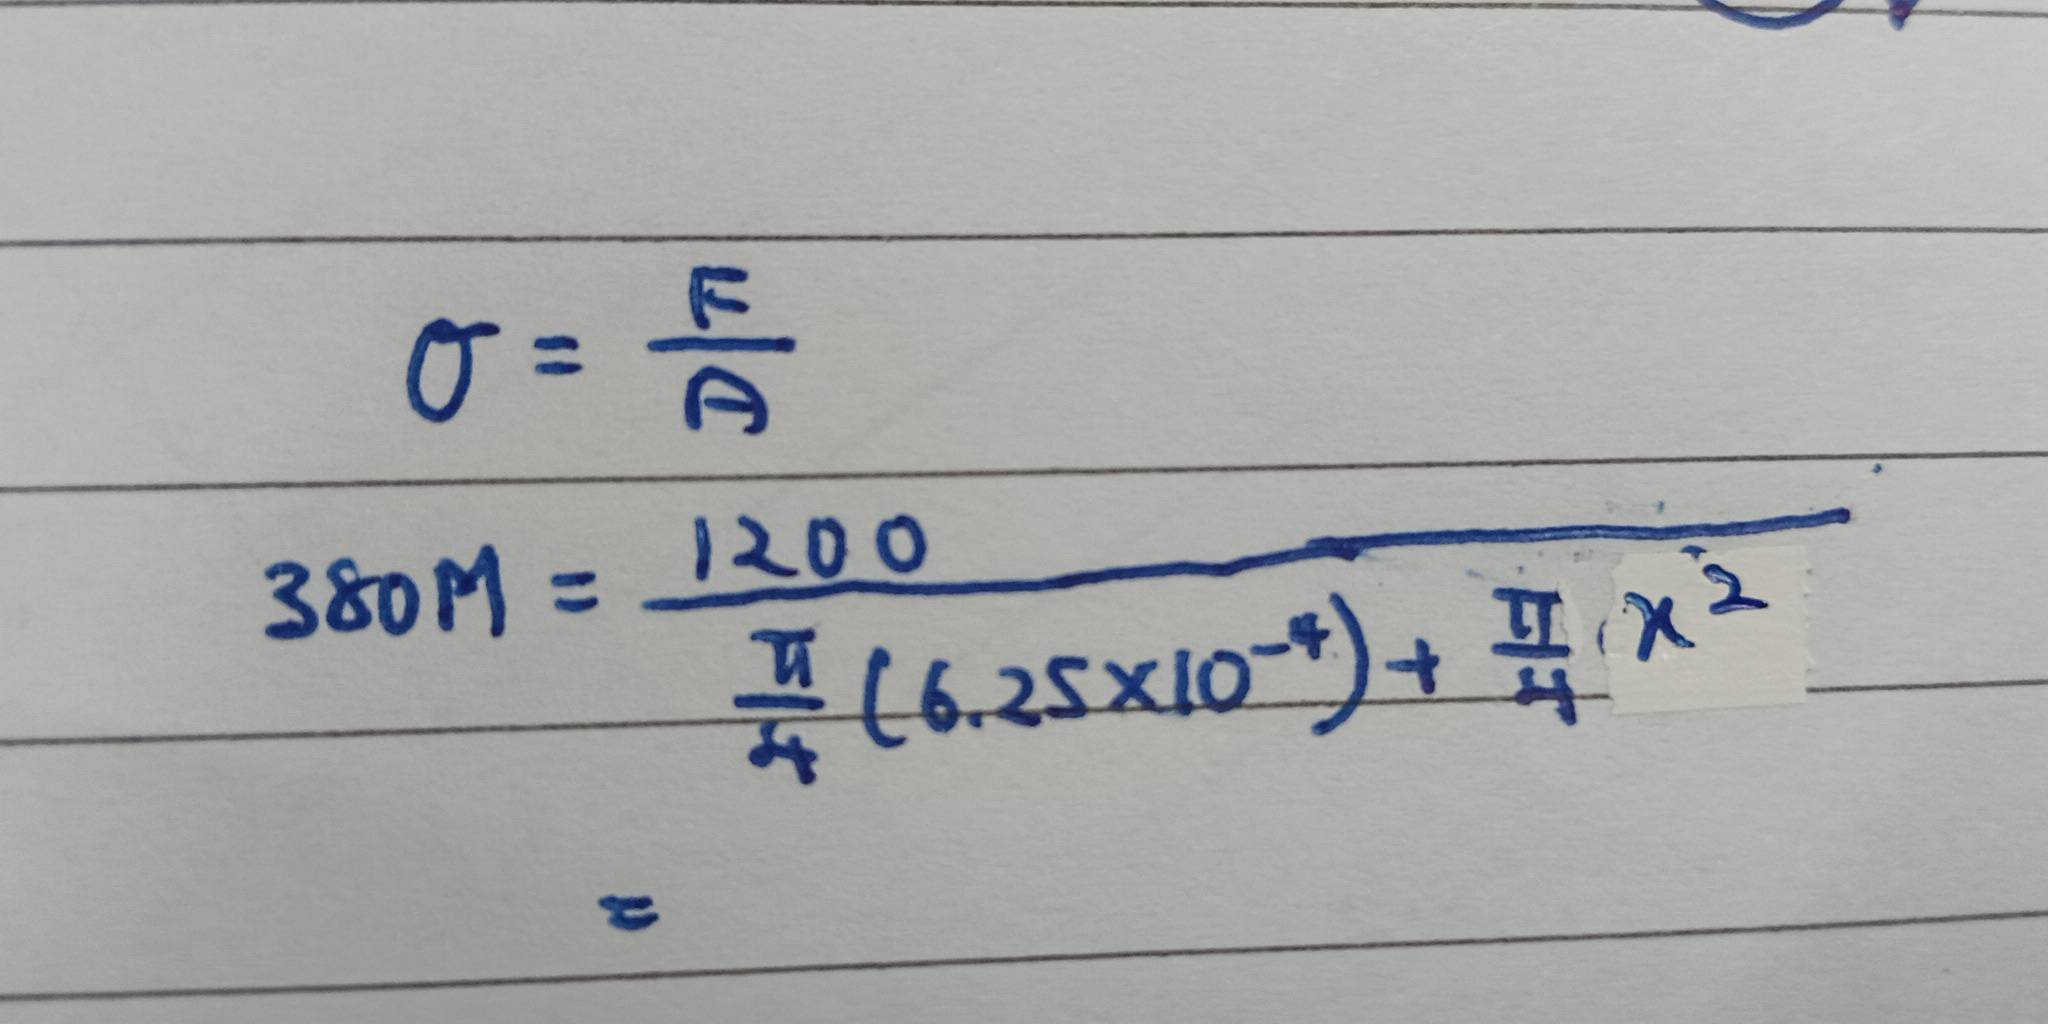 σ = F/A
380M = 1200 / π/4 (6.25×10⁻⁴) + π/4 x²
=